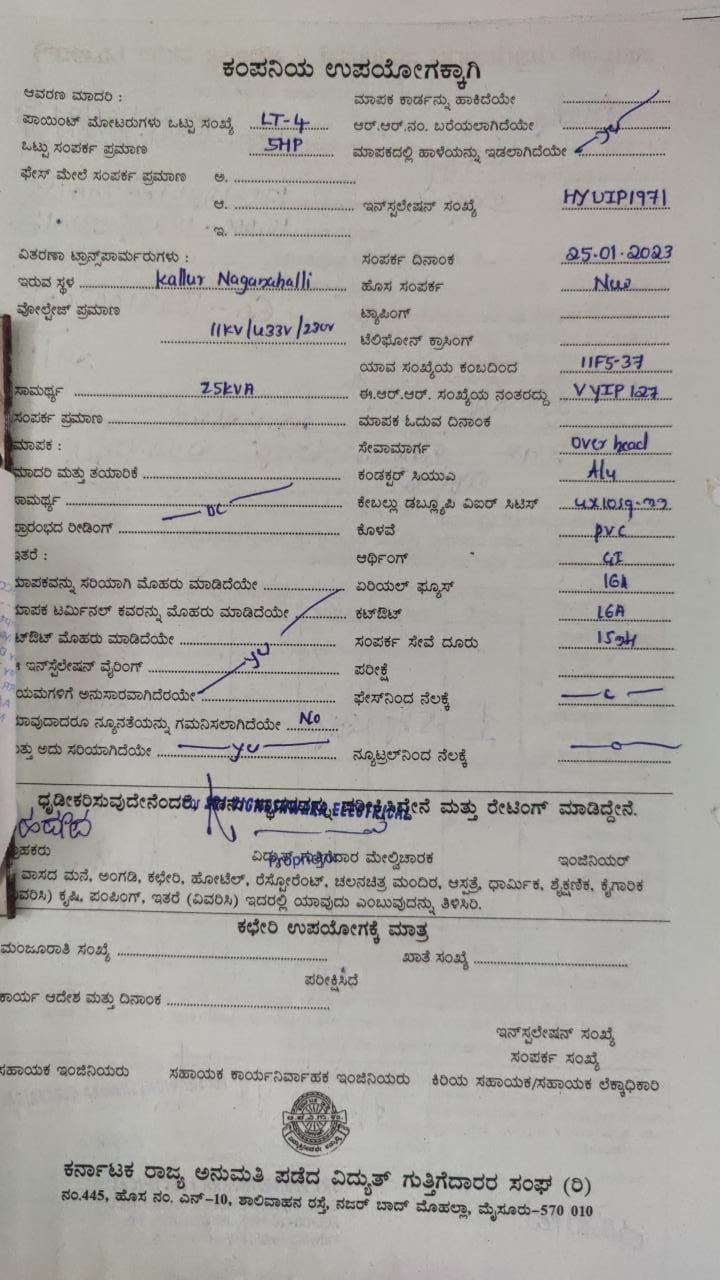 ಕಂಪನಿಯ ಉಪಯೋಗಕ್ಕಾಗಿ
ಆವರಣ ಮಾದರಿ : ಮಾಪಕ ಕಾರ್ಡನ್ನು ಹಾಕಿದೆಯೇ
ಪಾಯಿಂಟ್ ಮೋಟರುಗಳು ಒಟ್ಟು ಸಂಖ್ಯೆ LT-4 ಆರ್.ಆರ್.ನಂ. ಬರೆಯಲಾಗಿದೆಯೇ
ಒಟ್ಟು ಸಂಪರ್ಕ ಪ್ರಮಾಣ 5HP ಮಾಪಕದಲ್ಲಿ ಹಾಳೆಯನ್ನು ಇಡಲಾಗಿದೆಯೇ
ಫೇಸ್ ಮೇಲೆ ಸಂಪರ್ಕ ಪ್ರಮಾಣ ಅ.
ಆ. ಇನ್‌ಸ್ಟಲೇಷನ್ ಸಂಖ್ಯೆ HYUIP1971
ಇ.
ವಿತರಣಾ ಟ್ರಾನ್ಸ್‌ಫಾರ್ಮರುಗಳು : ಸಂಪರ್ಕ ದಿನಾಂಕ 25.01.2023
ಇರುವ ಸ್ಥಳ Kallur Naganahalli ಹೊಸ ಸಂಪರ್ಕ
ವೋಲ್ಟೇಜ್ ಪ್ರಮಾಣ 11KV/433V/230V ಟ್ಯಾಪಿಂಗ್
ಟೆಲಿಫೋನ್ ಕ್ರಾಸಿಂಗ್
ಯಾವ ಸಂಖ್ಯೆಯ ಕಂಬದಿಂದ 11F5-37
ಸಾಮರ್ಥ್ಯ 25KVA ಈ.ಆರ್.ಆರ್. ಸಂಖ್ಯೆಯ ನಂತರದ್ದು VYIP127
ಸಂಪರ್ಕ ಪ್ರಮಾಣ ಮಾಪಕ ಓದುವ ದಿನಾಂಕ
ಮಾಪಕ : ಸೇವಾಮಾರ್ಗ Over head
ಮಾದರಿ ಮತ್ತು ತಯಾರಿಕೆ ಕಂಡಕ್ಟರ್ ಸಿಯುಎ Alu
ಸಾಮರ್ಥ್ಯ DC ಕೇಬಲ್ಲು ಡಬ್ಲ್ಯೂಪಿ ವಿಐರ್ ಸಿಟಿಸ್
ಪ್ರಾರಂಭದ ರೀಡಿಂಗ್ ಕೊಳವೆ PVC
ಇತರೆ : ಆರ್ಥಿಂಗ್ GI
ಮಾಪಕವನ್ನು ಸರಿಯಾಗಿ ಮೊಹರು ಮಾಡಿದೆಯೇ ಏರಿಯಲ್ ಫ್ಯೂಸ್ 16A
ಮಾಪಕ ಟರ್ಮಿನಲ್ ಕವರನ್ನು ಮೊಹರು ಮಾಡಿದೆಯೇ ಕಟ್‌ಔಟ್ 16A
ಟ್‌ಔಟ್ ಮೊಹರು ಮಾಡಿದೆಯೇ ಸಂಪರ್ಕ ಸೇವೆ ದೂರು
ಇನ್‌ಸ್ಟಲೇಷನ್ ವೈರಿಂಗ್ ಪರೀಕ್ಷೆ
ಯಮಗಳಿಗೆ ಅನುಸಾರವಾಗಿದೆರಯೇ ಫೇಸ್‌ನಿಂದ ನೆಲಕ್ಕೆ
ಯಾವುದಾದರೂ ನ್ಯೂನತೆಯನ್ನು ಗಮನಿಸಲಾಗಿದೆಯೇ No
ಮತ್ತು ಅದು ಸರಿಯಾಗಿದೆಯೇ ನ್ಯೂಟ್ರಲ್‌ನಿಂದ ನೆಲಕ್ಕೆ
ಧೃಡೀಕರಿಸುವುದೇನೆಂದರೆ ELECTRICAL ಪರೀಕ್ಷಿಸಿದ್ದೇನೆ ಮತ್ತು ರೇಟಿಂಗ್ ಮಾಡಿದ್ದೇನೆ.
ಗ್ರಾಹಕರು ವಿದ್ಯುತ್ ಗುತ್ತಿಗೆದಾರ ಮೇಲ್ವಿಚಾರಕ ಇಂಜಿನಿಯರ್
ವಾಸದ ಮನೆ, ಅಂಗಡಿ, ಕಛೇರಿ, ಹೋಟೆಲ್, ರೆಸ್ಟೋರೆಂಟ್, ಚಲನಚಿತ್ರ ಮಂದಿರ, ಆಸ್ಪತ್ರೆ, ಧಾರ್ಮಿಕ, ಶೈಕ್ಷಣಿಕ, ಕೈಗಾರಿಕ
(ವಿವರಿಸಿ) ಕೃಷಿ, ಪಂಪಿಂಗ್, ಇತರೆ (ವಿವರಿಸಿ) ಇದರಲ್ಲಿ ಯಾವುದು ಎಂಬುವುದನ್ನು ತಿಳಿಸಿರಿ.
ಕಛೇರಿ ಉಪಯೋಗಕ್ಕೆ ಮಾತ್ರ
ಮಂಜೂರಾತಿ ಸಂಖ್ಯೆ ಖಾತೆ ಸಂಖ್ಯೆ
ಪರೀಕ್ಷಿಸಿದೆ
ಕಾರ್ಯ ಆದೇಶ ಮತ್ತು ದಿನಾಂಕ
ಇನ್‌ಸ್ಟಲೇಷನ್ ಸಂಖ್ಯೆ
ಸಂಪರ್ಕ ಸಂಖ್ಯೆ
ಸಹಾಯಕ ಇಂಜಿನಿಯರು ಸಹಾಯಕ ಕಾರ್ಯನಿರ್ವಾಹಕ ಇಂಜಿನಿಯರು ಕಿರಿಯ ಸಹಾಯಕ/ಸಹಾಯಕ ಲೆಕ್ಕಾಧಿಕಾರಿ
ಕರ್ನಾಟಕ ರಾಜ್ಯ ಅನುಮತಿ ಪಡೆದ ವಿದ್ಯುತ್ ಗುತ್ತಿಗೆದಾರರ ಸಂಘ (ರಿ)
ನಂ.445, ಹೊಸ ನಂ. ಎನ್-10, ಶಾಲಿವಾಹನ ರಸ್ತೆ, ನಜರ್ ಬಾದ್ ಮೊಹಲ್ಲಾ, ಮೈಸೂರು-570 010